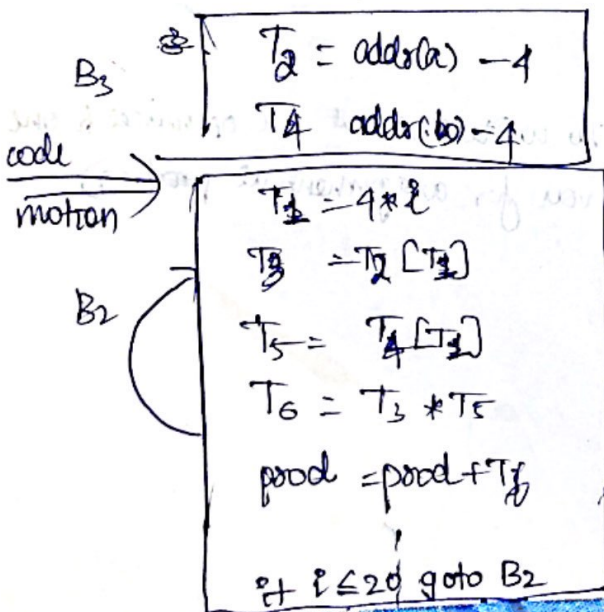 B3
T2 = addr(a) - 4
T4 addr(b) - 4
code
motion
B2
T1 = 4*i
T3 = T2[T1]
T5 = T4[T1]
T6 = T3 * T5
prod = prod + T6
if i ≤ 20 goto B2